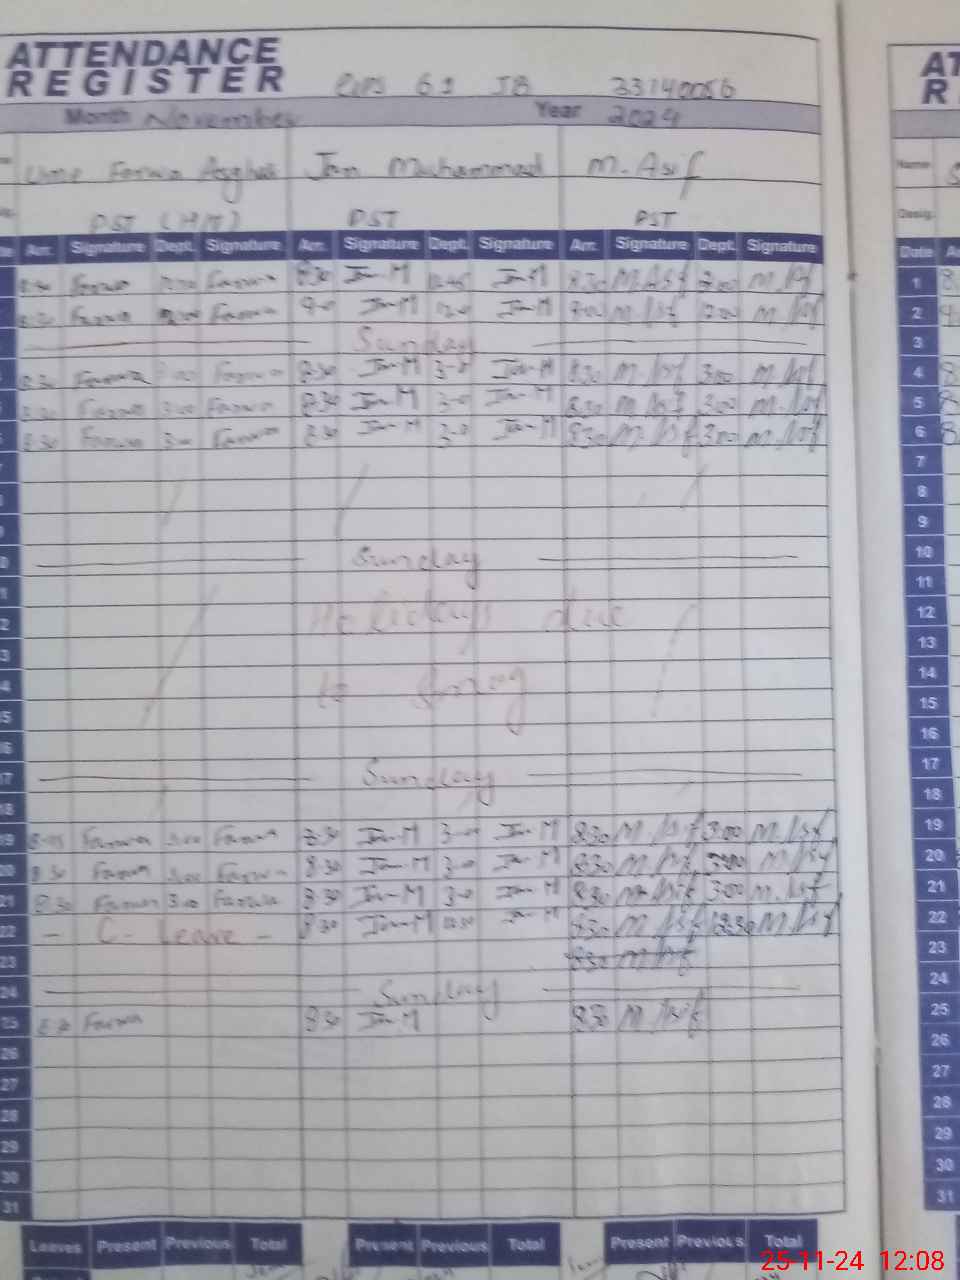 ATTENDANCE
REGISTER
GPS 61 JB 33140056
Month November Year 2024
Farwa Asghar Jan Muhammad M. Asif
PST (H/T) PST PST
Arr. Signature Dept. Signature Arr. Signature Dept. Signature Arr. Signature Dept. Signature
Farwa Farwa 8:30 Jan-M 12:45 Jan-M 8:30 M.Asif M.Asif
Farwa Farwa 9-0 Jan-M 12-0 Jan-M 9:00 M.Asif 12:00 M.Asif
Sunday
8:30 Farwa 3:00 Farwa 8:30 Jan-M 3-0 Jan-M 8:30 M.Asif 3:00 M.Asif
8:30 Farwa 3:00 Farwa 8:30 Jan-M 3-0 Jan-M 8:30 M.Asif 3:00 M.Asif
8:30 Farwa 3:00 Farwa 8:30 Jan-M 3-0 Jan-M 8:30 M.Asif 3:00 M.Asif
Sunday
Holidays due
to Smog
17 Sunday
18
19 Farwa 3:00 Farwa 8:30 Jan-M 3-00 Jan-M 8:30 M.Asif 3:00 M.Asif
20 8:30 Farwa 3:00 Farwa 8:30 Jan-M 3-0 Jan-M 8:30 M.Asif 3:00 M.Asif
21 8:30 Farwa 3:00 Farwa 8:30 Jan-M 3-0 Jan-M 8:30 M.Asif 3:00 M.Asif
22 - C- Leave - 8:30 Jan-M 12:30 Jan-M 8:30 M.Asif 12:30 M.Asif
23 8:30 M.Asif
24 Sunday
25 8:30 Farwa 8:30 Jan-M 8:30 M.Asif
26
27
28
29
30
31
Leaves Present Previous Total Present Previous Total Present Previous Total
AT
R
Name
Desig.
Date
1
2
3
4
5
6
7
8
9
10
11
12
13
14
15
16
17
18
19
20
21
22
23
24
25
26
27
28
29
30
31
25-11-24 12:08